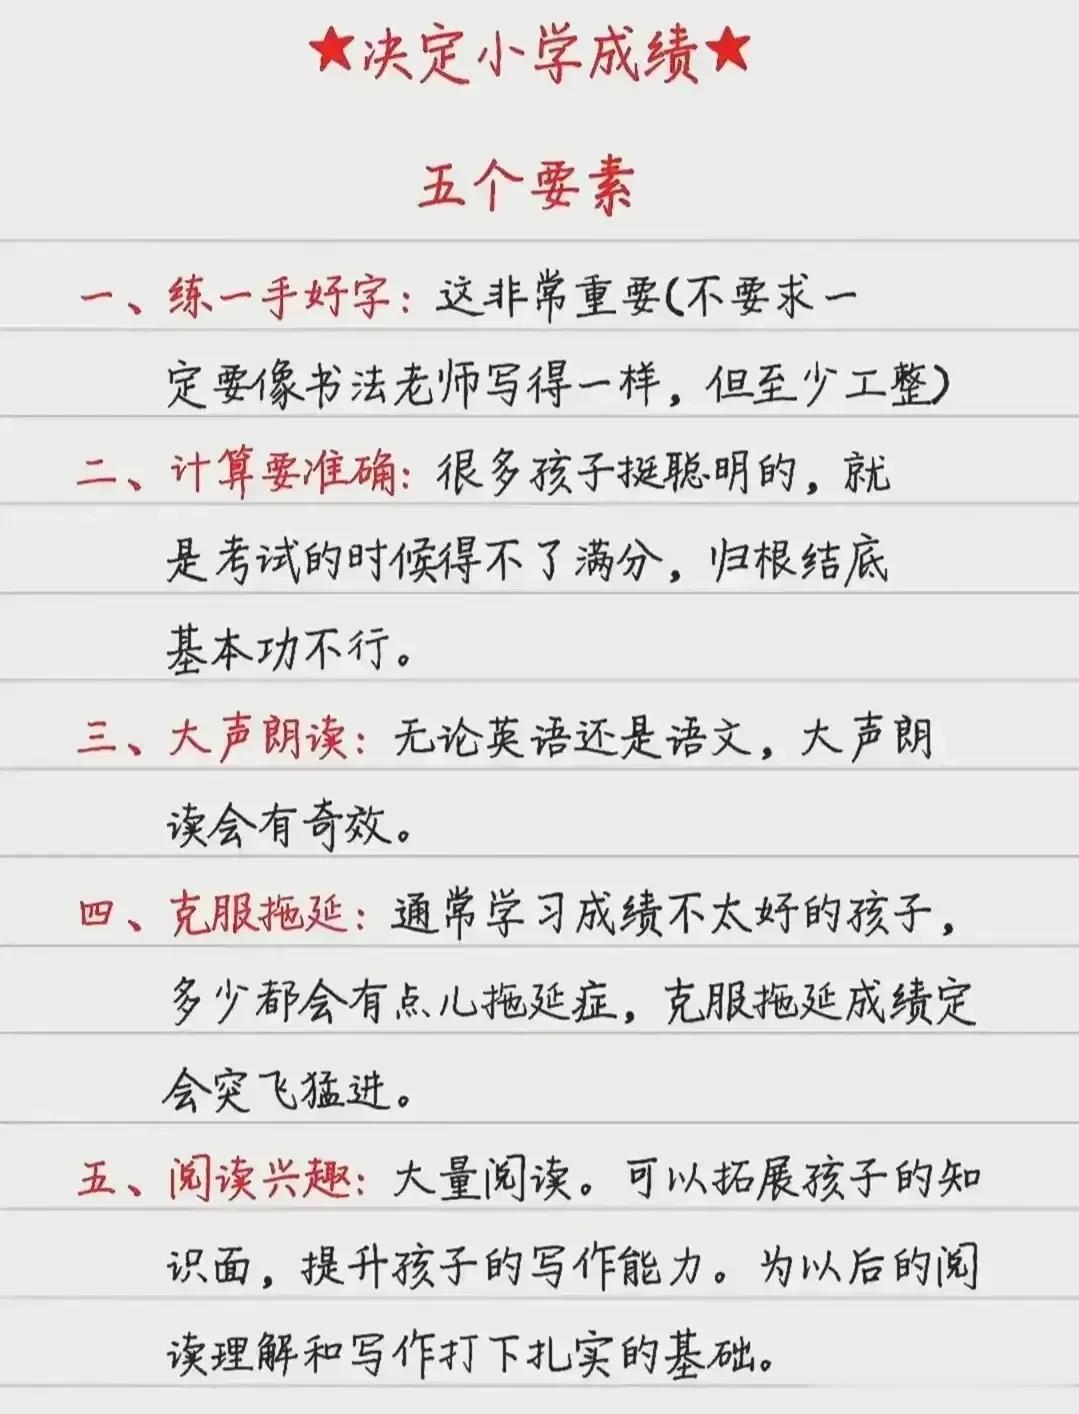 ★决定小学成绩★
五个要素
一、练一手好字：这非常重要(不要求一
定要像书法老师写得一样，但至少工整)
二、计算要准确：很多孩子挺聪明的，就
是考试的时候得不了满分，归根结底
基本功不行。
三、大声朗读：无论英语还是语文，大声朗
读会有奇效。
四、克服拖延：通常学习成绩不太好的孩子，
多少都会有点儿拖延症，克服拖延成绩定
会突飞猛进。
五、阅读兴趣：大量阅读。可以拓展孩子的知
识面，提升孩子的写作能力。为以后的阅
读理解和写作打下扎实的基础。